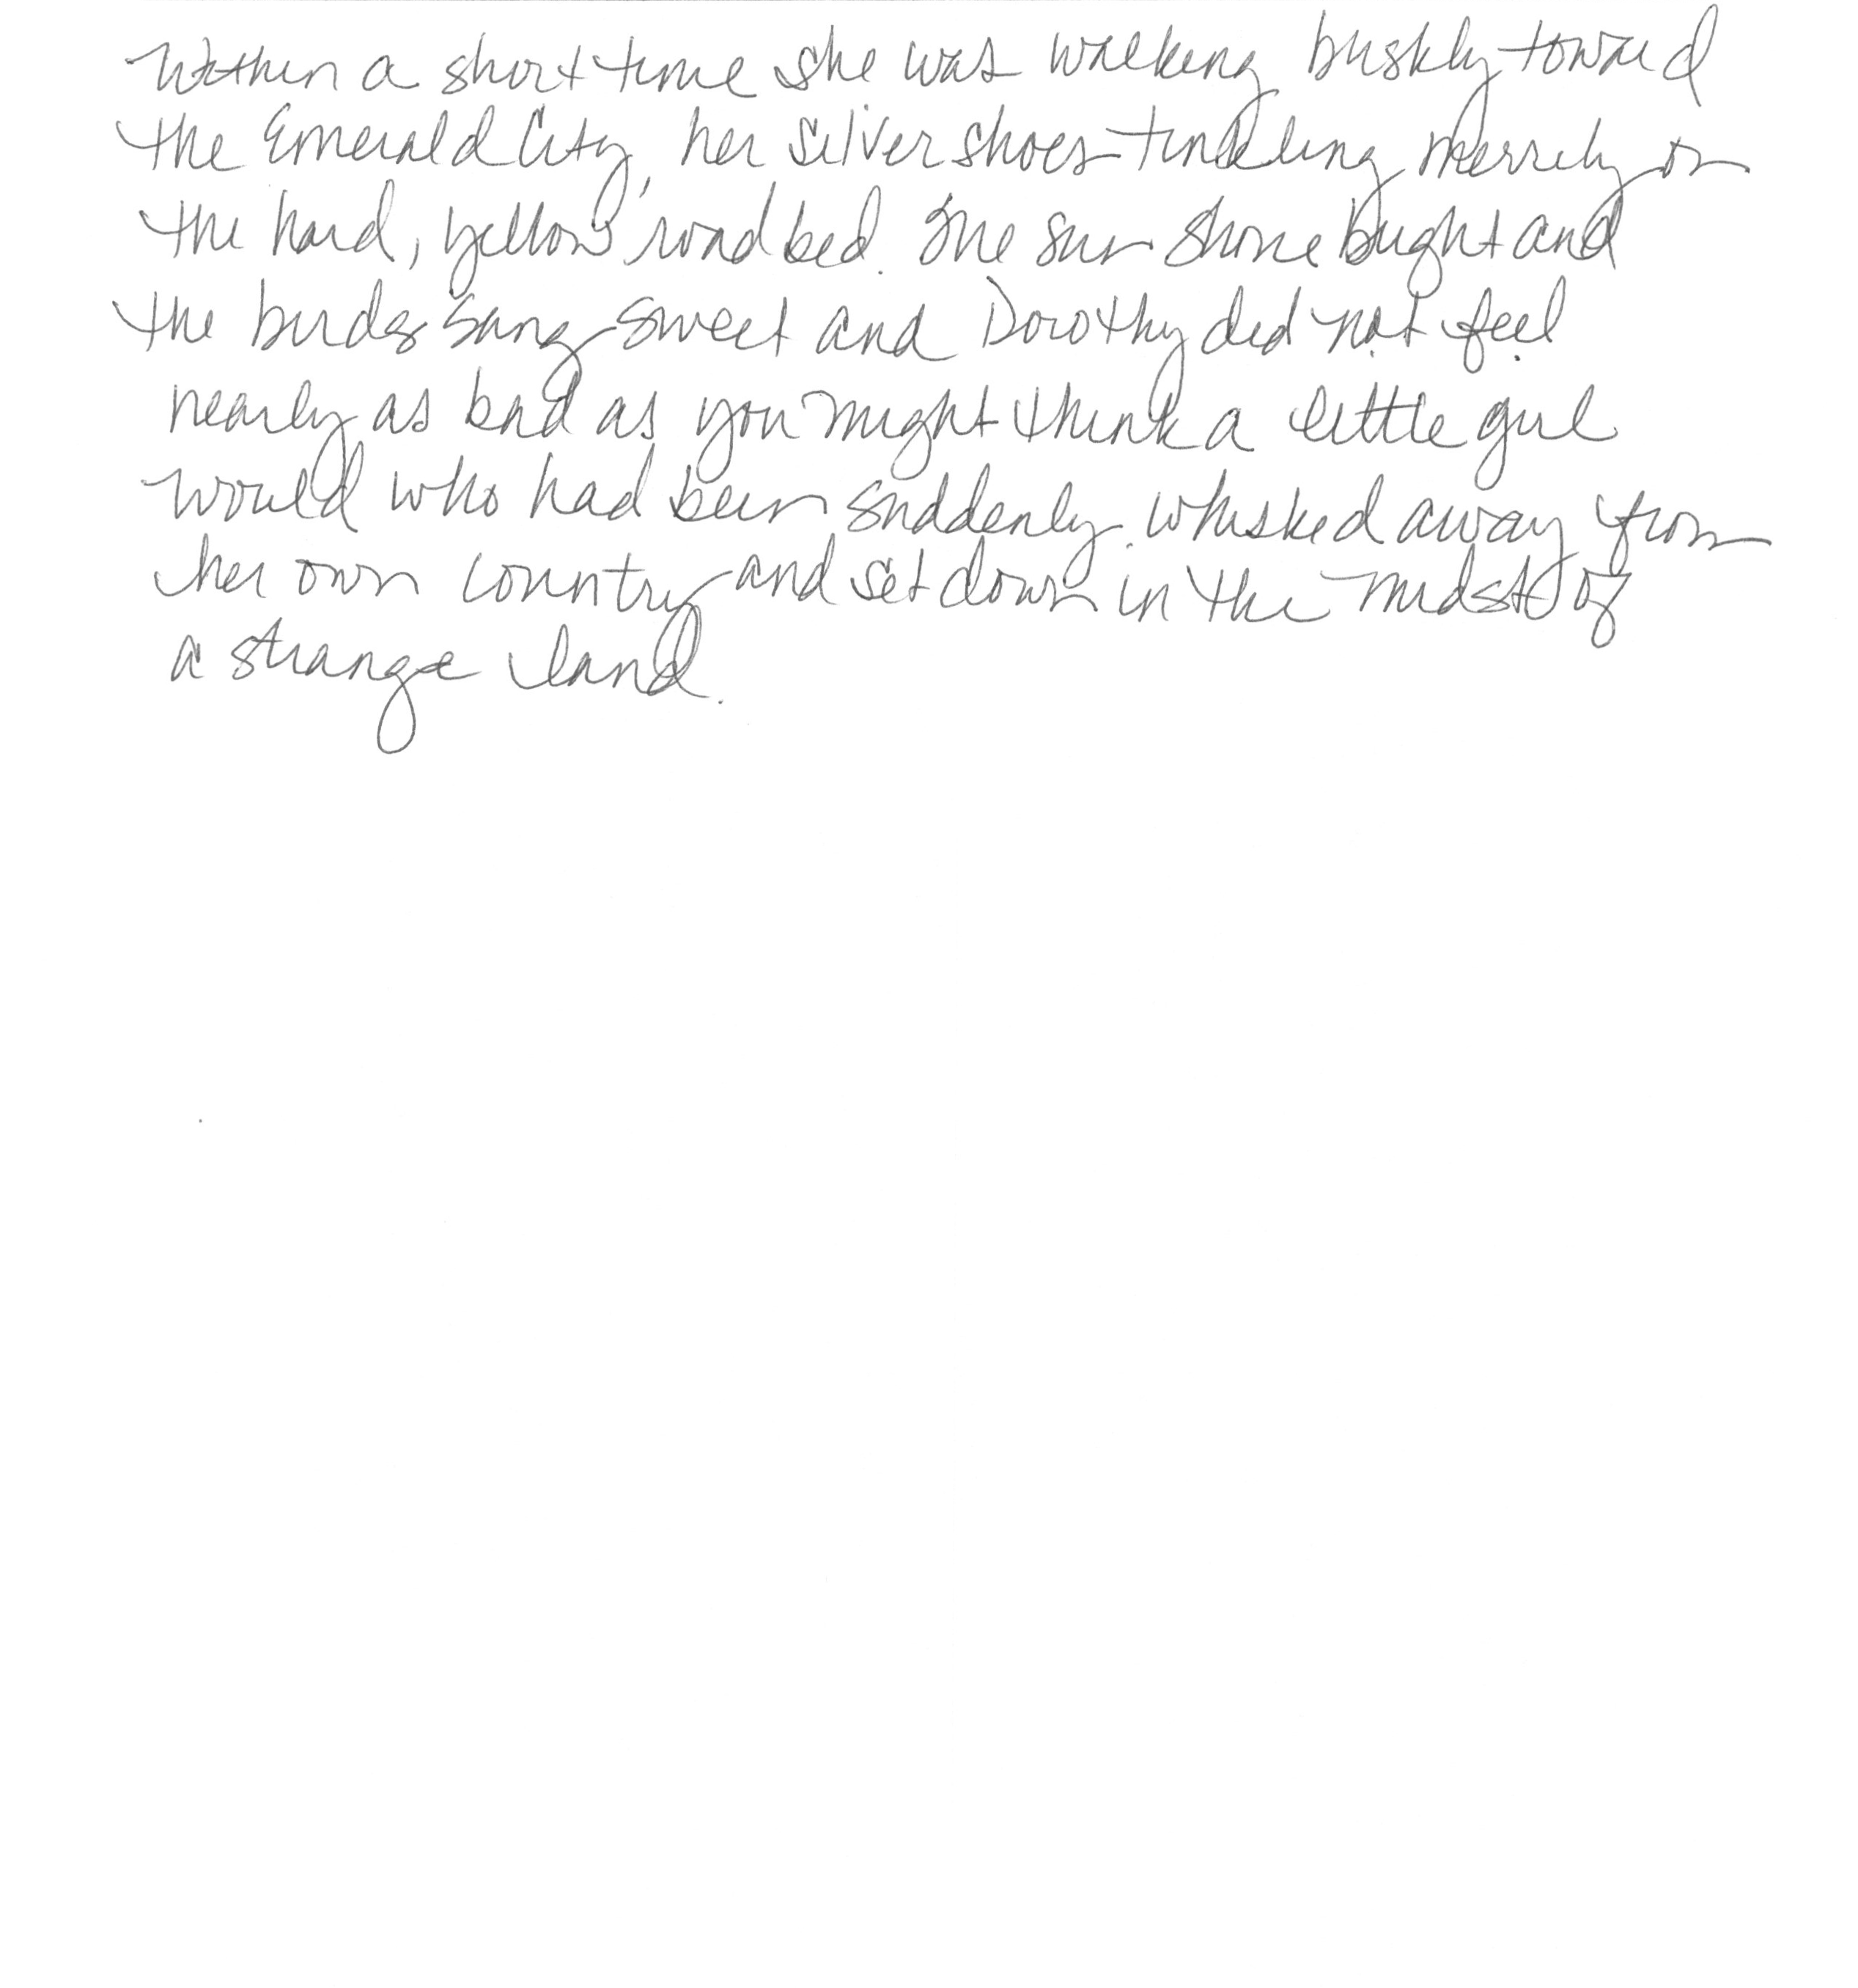 Within a short time she was walking briskly toward
the Emerald City, her Silver Shoes tinkling merrily on
the hard, yellow roadbed. The sun shone bright and
the birds sang sweet and Dorothy did not feel
nearly as bad as you might think a little girl
would who had been suddenly whisked away from
her own country and set down in the midst of
a strange land.